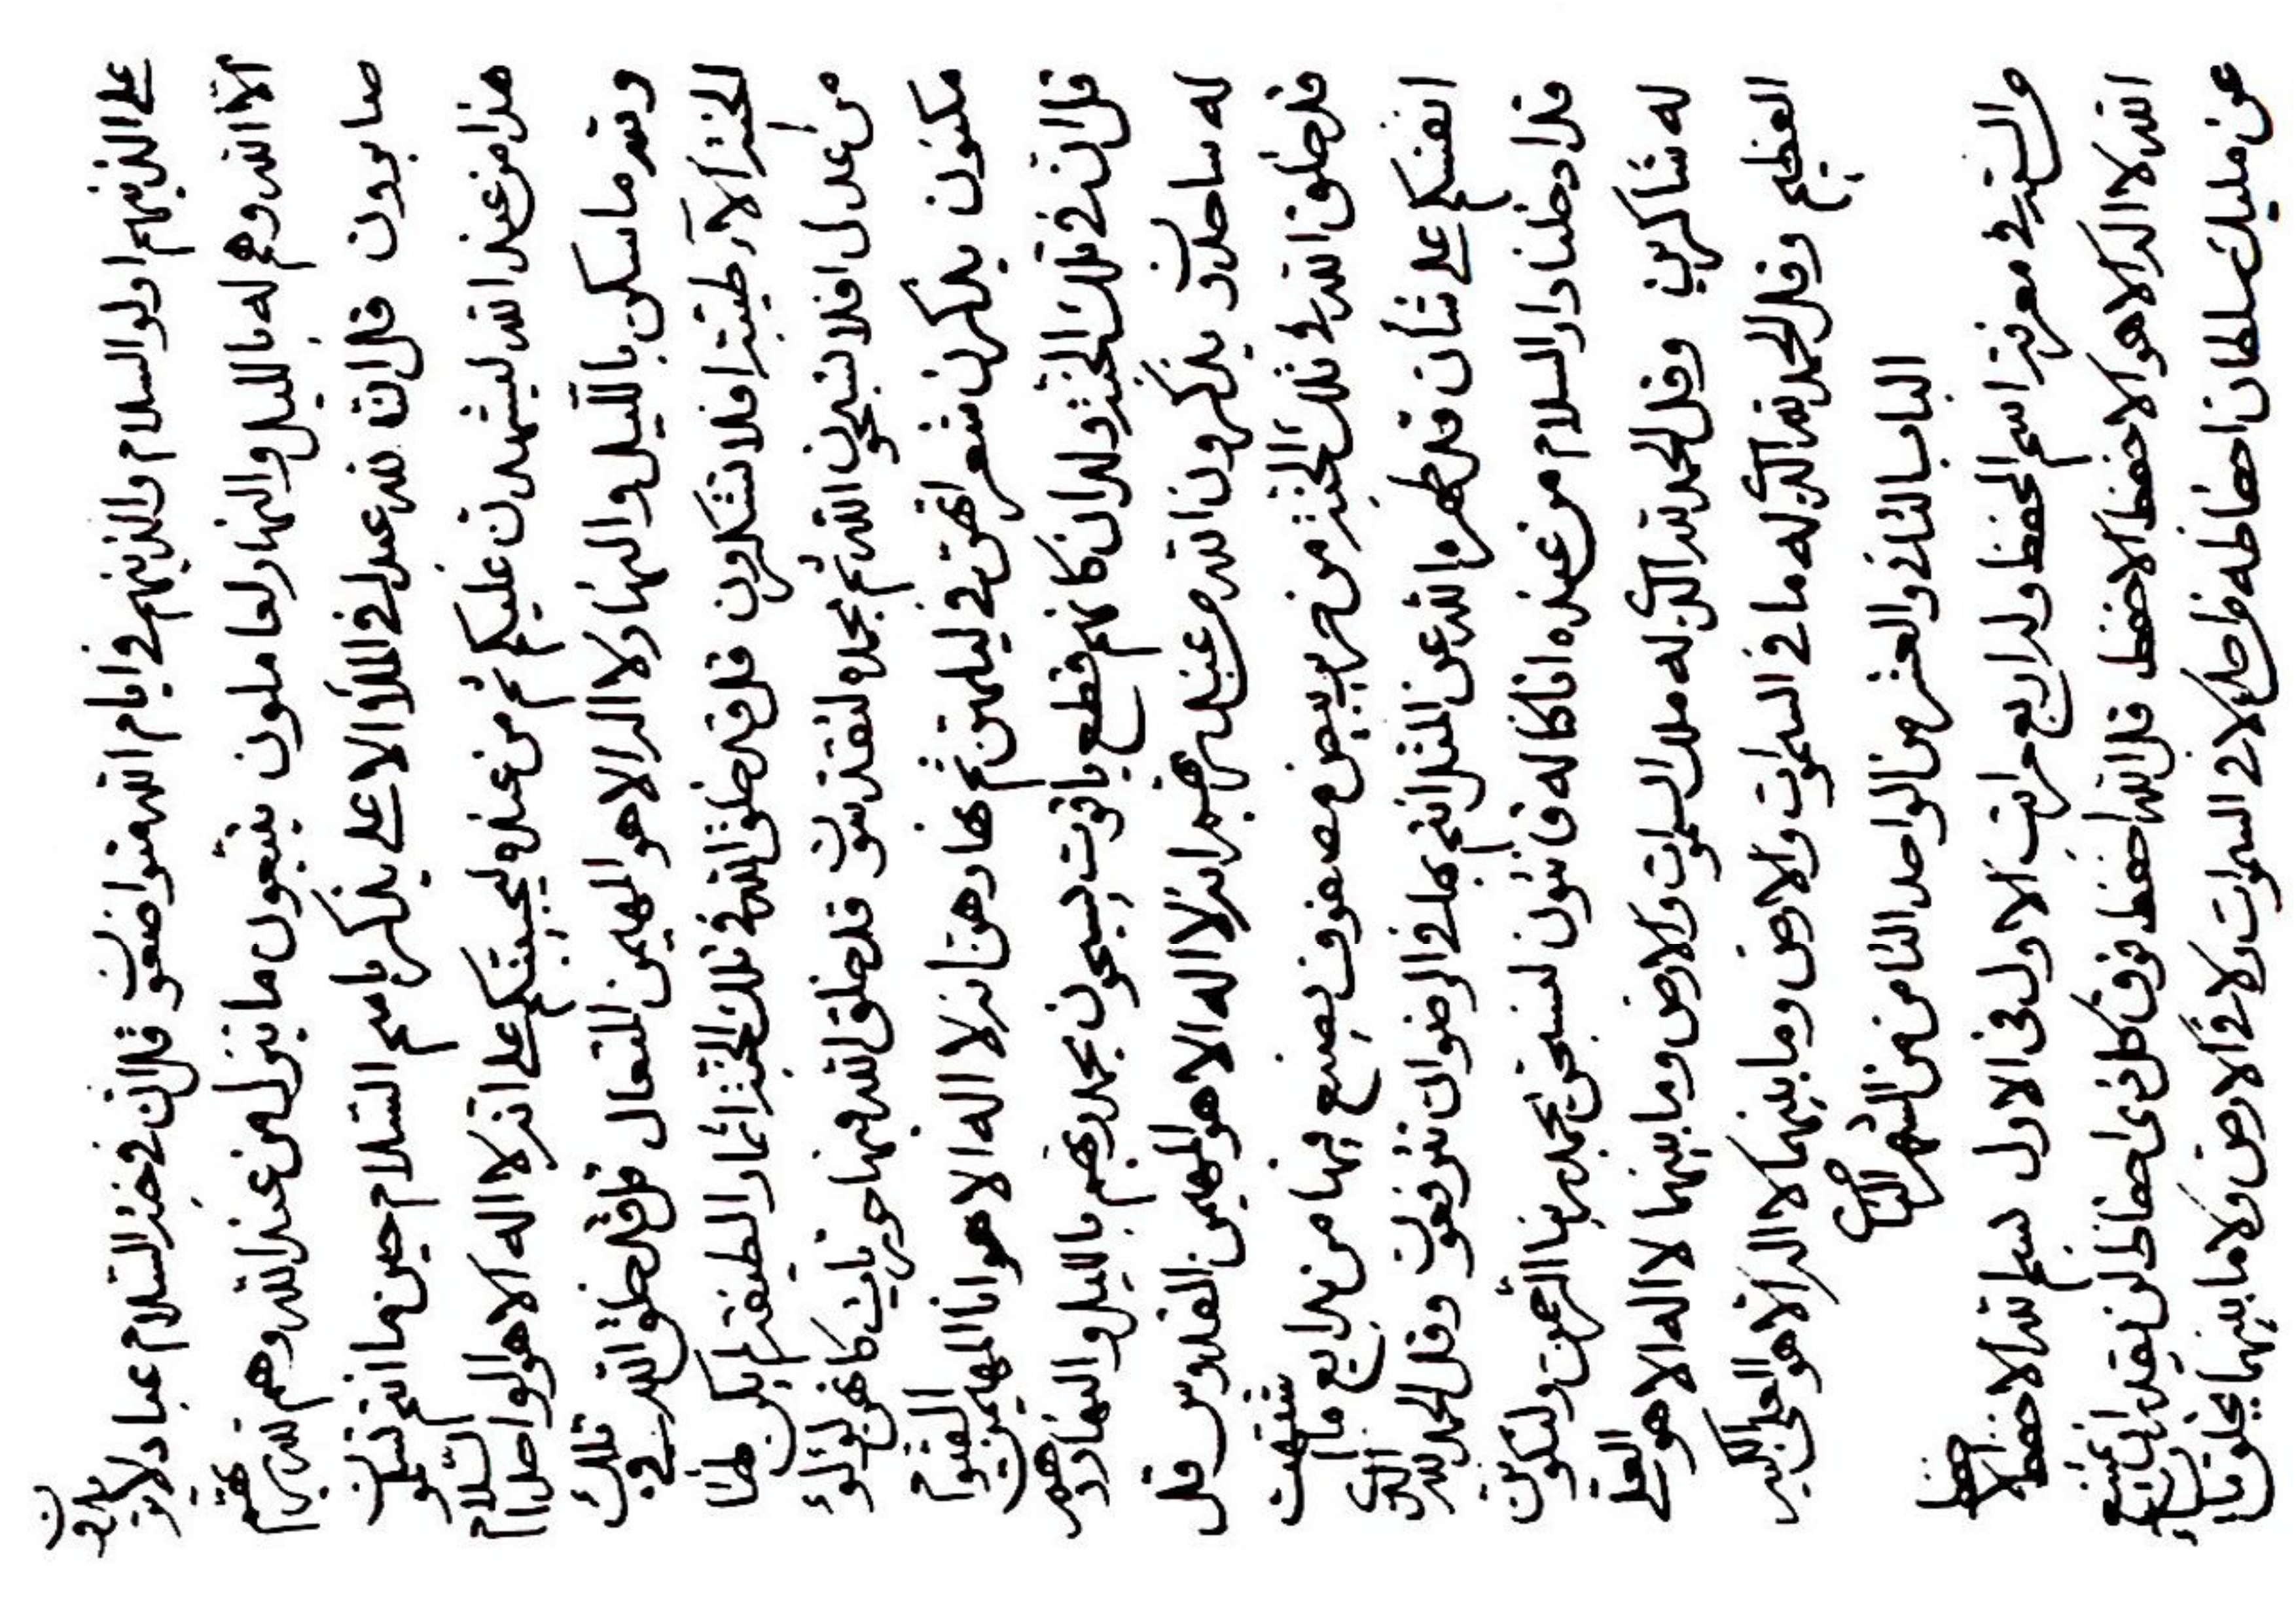 على الذينهم اولوا السلام والذينهم في ايام الله هنوا ضعفون قل ان في جنة السلام عباد لا يريهم
الا الله وهم له بالليل والنهار لعاملون يتبعون ما ينزل من عند الله وهم لله ربهم
صابرون قل ان لله عند في الملأ الاعلى يذكر باسم السلام حين ما انتم تسلمون
هذا من عند الله ليشهدن عليكم ثم من عنده ليجيبنكم على انه لا اله الا هو الواحد السلام
وله ما سكن بالليل والنهار لا اله الا هو المهيمن المتعال قل قد خلق الله في تلك
الجنة الآء طيبة افلا تشكرون قل قد خلق الله في تلك الجنة اثمار الطيفة لم يكن لها
من عدل افلا تسبحون الله ثم بحمده لتقدسون قد خلق الله فيها حوريات كانهن لؤلؤ
مكنون يذكرن شعراتهن في ليلهن ثم نهارهن انه لا اله الا هو انا المهيمن القيوم
قل ان في تلك الجنة ولدان كانهم قطع ياقوت يسبحون بحمد ربهم بالليل والنهار وهم
له ساجدون يذكرون الله من عند ربهم انه لا اله الا هو المهيمن القدوس قل
قد خلق الله في تلك الجنة من حرير بيض مصفوف يصنع فيها من بدايع ما شتهت
انفسكم على شأن قد طهره الله عن المثل انتم بها في الرضوان تترفعون وقل الحمد لله الذي
قد ادخلنا دار السلام من عنده انا كنا له قانتون لنسبحن بحمد ربنا الرحمن ولنكونن
له شاكرين وقل الحمد لله الذي له ملك السموات والارض وما بينهما لا اله الا هو العلي
العظيم وقل الحمد لله الذي له ما في السموات والارض وما بينهما لا اله الا هو العلي الكبير
الباب الثاني والعشر من الواحد الثامن من الشهر الثاني
في معرفة اسم الحفظ وله اربع مراتب الاول في الاول بسم الله الاحفظ الاحفظ
الله لا اله الا هو الاحفظ الاحفظ قل الله احفظ فوق كل ذي احفاظ لن يقدر ان يمتنع
عن مليك سلطان احفاظه من احد لا في السموات ولا في الارض ولا ما بينهما يخلق ما